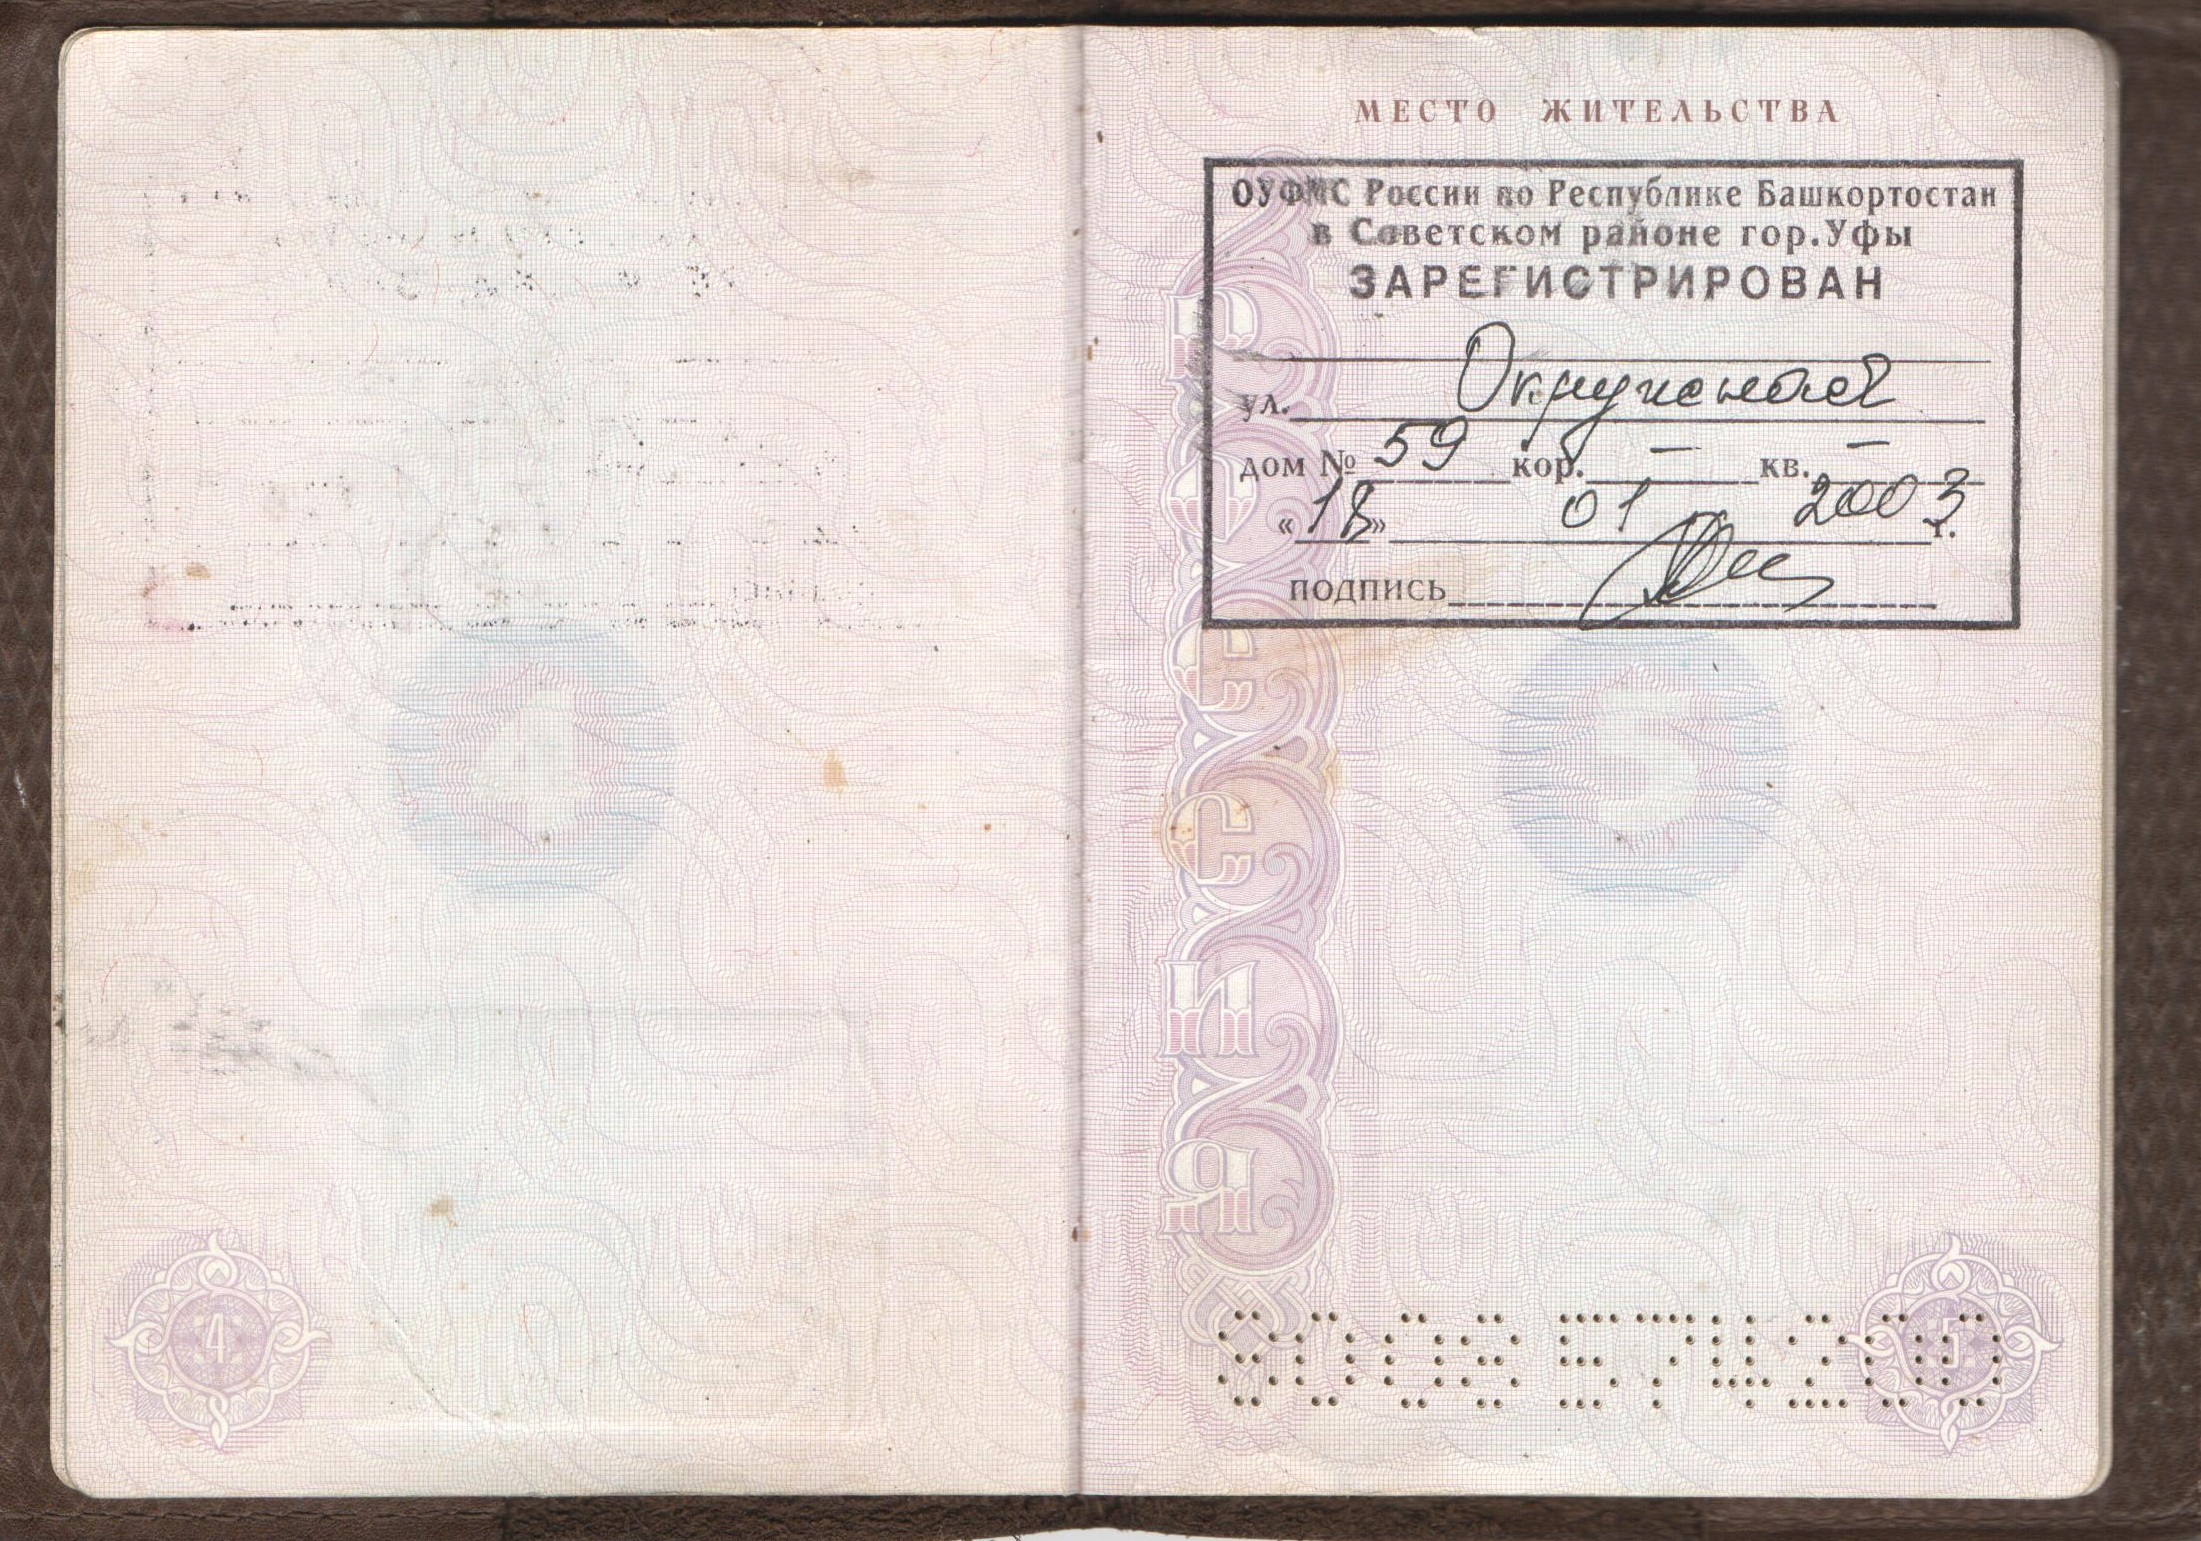 МЕСТО ЖИТЕЛЬСТВА
ОУФМС России по Республике Башкортостан
в Советском районе гор.Уфы
ЗАРЕГИСТРИРОВАН
ул. Окружная
дом № 59 кор. – кв. –
«18» 01 2003 г.
подпись
РОССИЯ
4
5
8008 574200
4
5